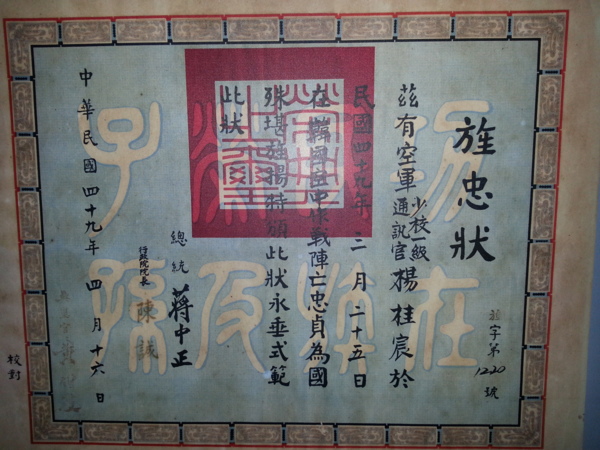 旌忠狀
字第1220號
茲有空軍少校一級通訊官楊桂宸於
民國四十九年三月二十五日
在韓國空中作戰陣亡忠貞為國
殊堪旌揚特頒此狀永垂式範
此狀
總統 蔣中正
行政院院長 陳誠
中華民國四十九年四月十六日
校對